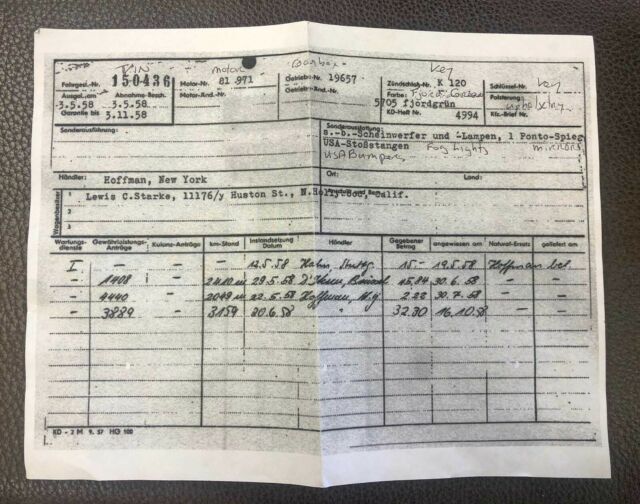 VIN motor Gearbox Key Key
Fahrgest.-Nr. 150436 Motor-Nr. 81 971 Getriebe-Nr. 19657 Zündschloß-Nr. K 120 Schlüssel-Nr.
Ausgel. am Abnahme-Besch. Motor-Änd.-Nr. Getriebe-Änd.-Nr. Farbe: Fjord Green Polsterung
3.5.58 3.5.58 5705 fjordgrün upholstery
Garantie bis 3.11.58 KD-Heft Nr. 4994 Kfz.-Brief Nr.
Sonderausführung: Sonderausstattung:
s.-b.-Scheinwerfer und -Lampen, 1 Ponto-Spieg
USA-Stoßstangen Fog Lights mirrors
USA Bumpers
Händler: Ort: Land:
Hoffman, New York
Wagenbesitzer 1 Lewis C.Starke, 11176/y Huston St., N.Hollywood, Calif.
2
3
Wartungs-dienste Gewährleistungs-Anträge Kulanz-Anträge km-Stand Instandsetzung Datum Händler Gegebener Betrag angewiesen am Natural-Ersatz geliefert am
I. - - - 12.5.58 Hahn, Stuttg. 15.- 19.5.58 Hoffman bel.
- 1408 - 2410 m 29.5.58 45,84 30.6.58 - -
- 4440 - 2049 m 22.5.58 Hoffman, N.Y. 2.28 30.7.58 - -
- 3889 - 3159 20.6.58 " 32.30 16.10.58 - -
KD - 2 M 9. 57 HG 100